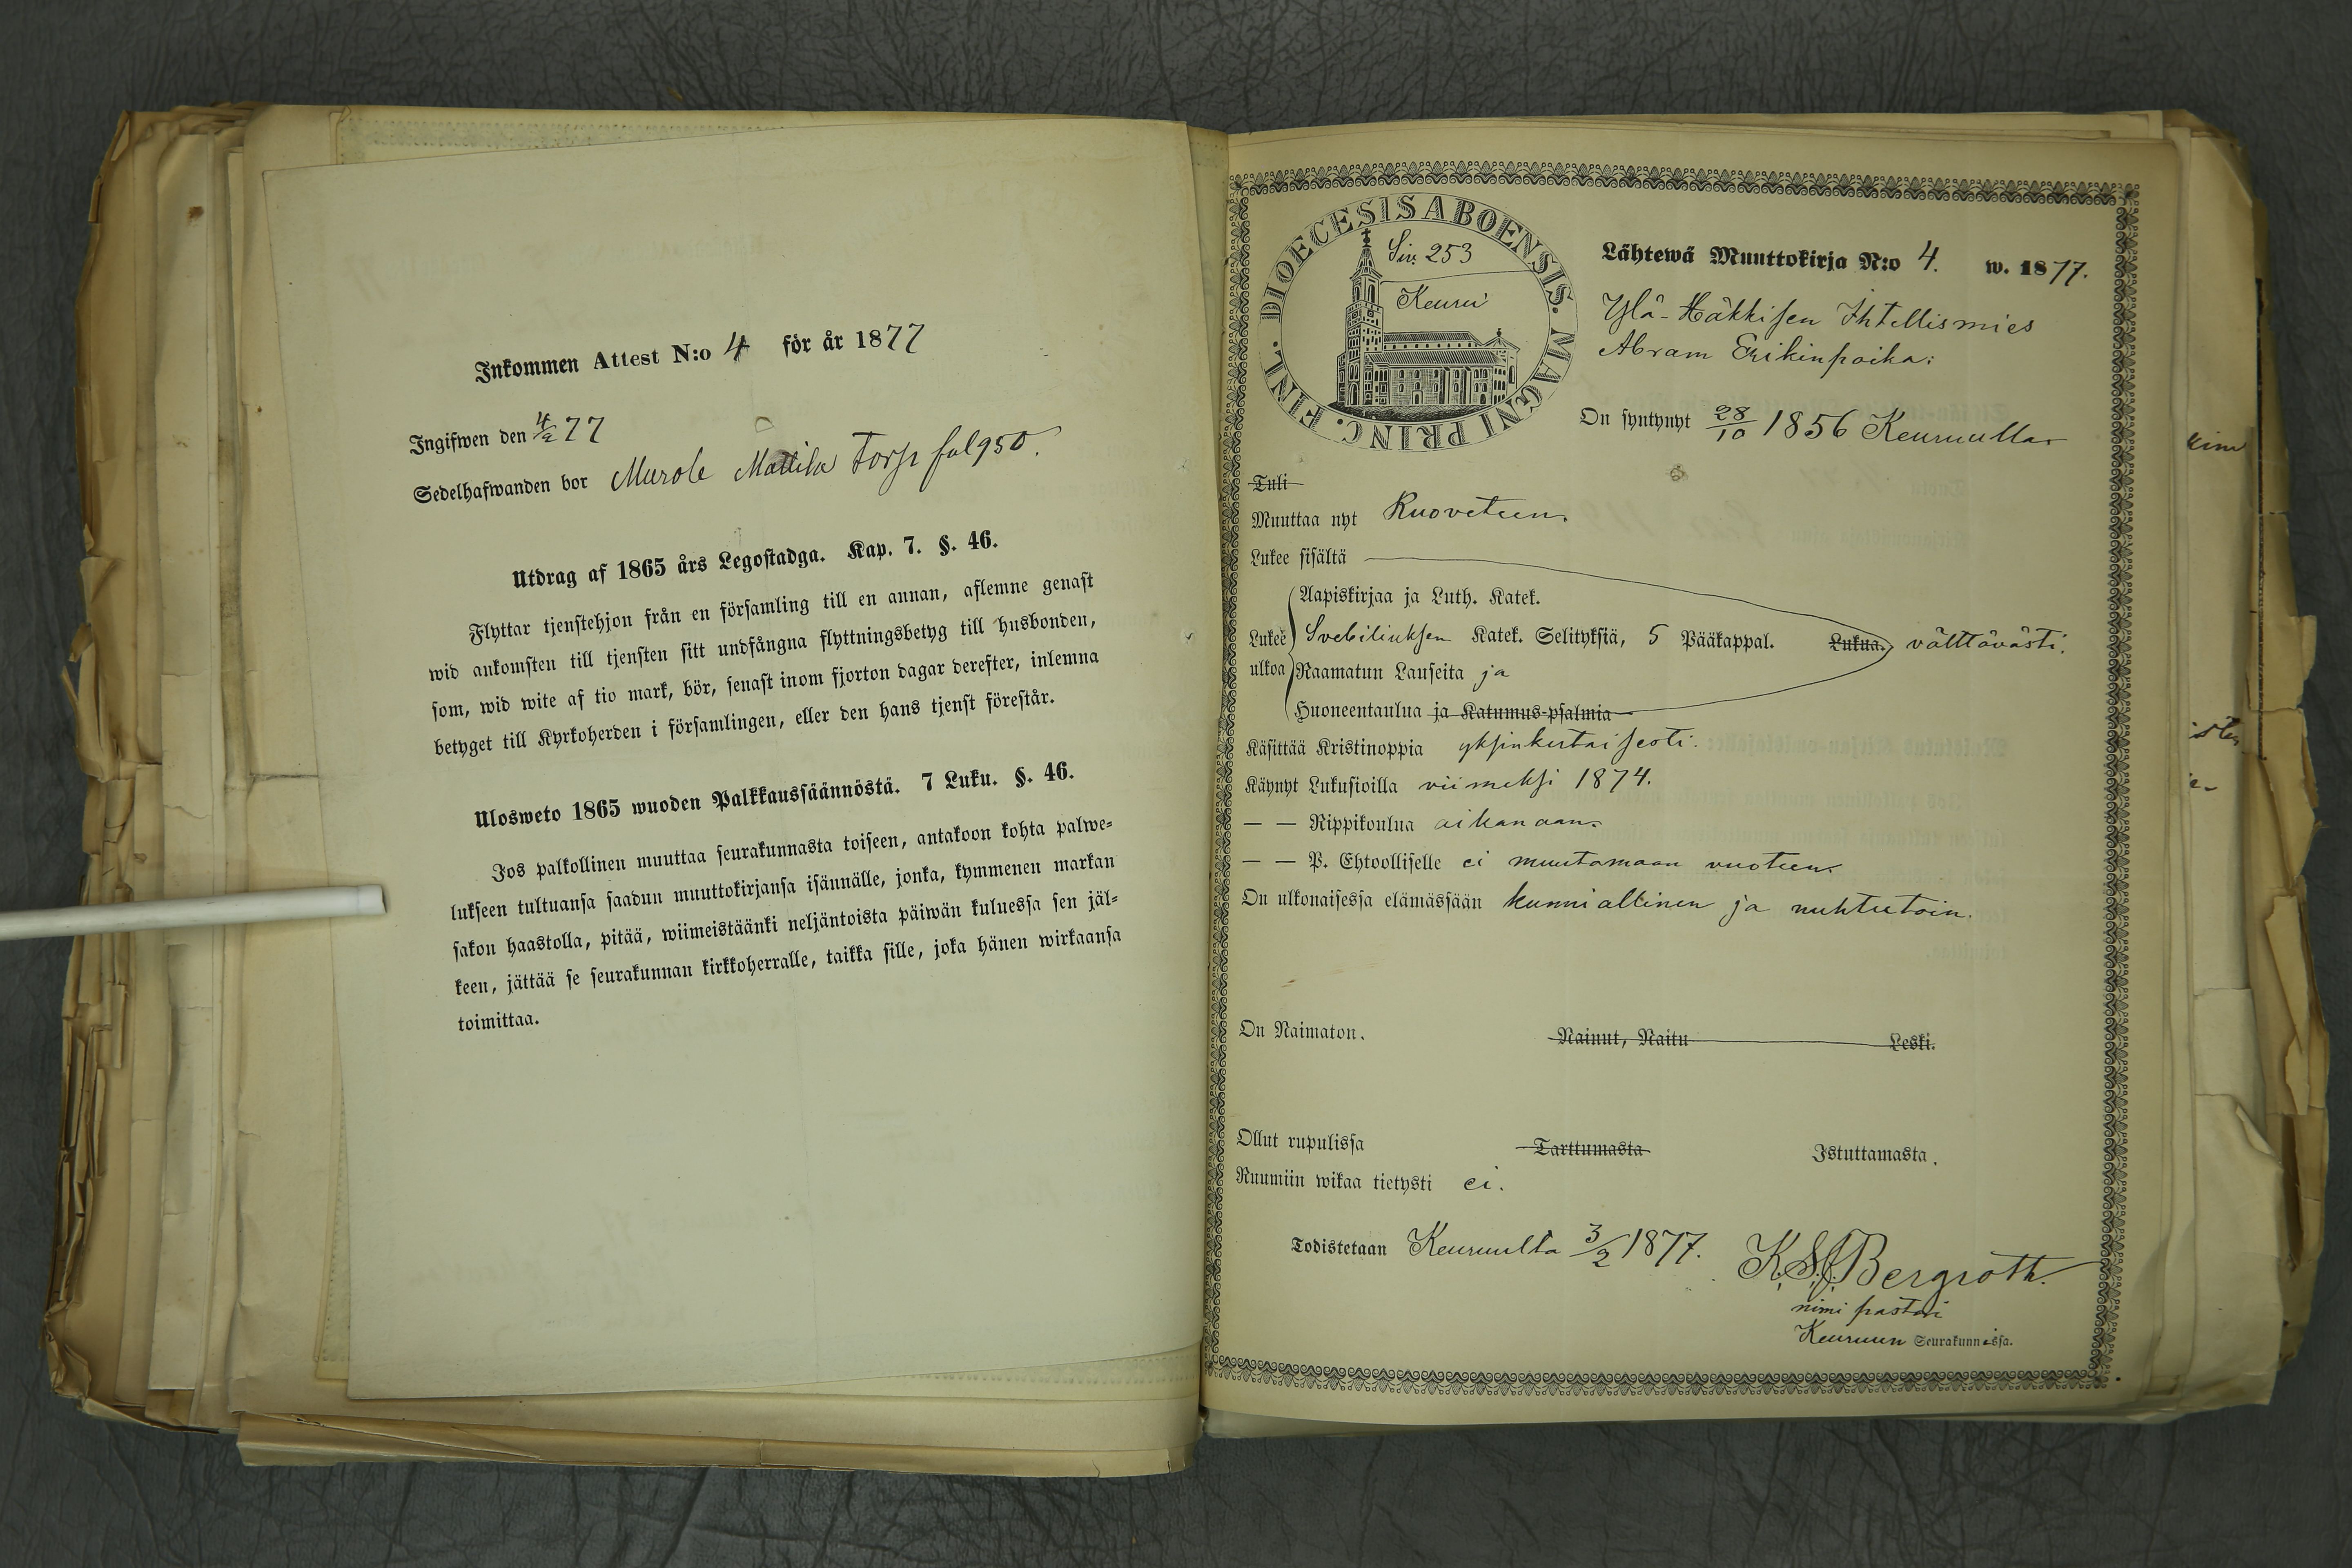 Inkommen Attest N:o 4 för år 1877
Ingifwen den 4/2 77
Sedelhafwanden bor Murole Mattila Torp fol 950.
Utdrag af 1865 års Legostadga. Kap. 7. §. 46.
Flyttar tjenstehjon från en församling till en annan, aflemne genast
wid ankomsten till tjensten sitt undfångna flyttningsbetyg till husbonden,
som, wid wite af tio mark, bör, senast inom fjorton dagar derefter, inlemna
betyget till Kyrkoherden i församlingen, eller den hans tjenst förestår.
Ulosweto 1865 wuoden Palkkaussäännöstä. 7 Luku. §. 46.
Jos palkollinen muuttaa seurakunnasta toiseen, antakoon kohta palwe-
lukseen tultuansa saadun muuttokirjansa isännälle, jonka, kymmenen markan
sakon haastolla, pitää, wiimeistäänki neljäntoista päiwän kuluessa sen jäl-
keen, jättää se seurakunnan kirkkoherralle, taikka sille, joka hänen wirkaansa
toimittaa.
DIOECESIS ABOENSIS. MAGNI PRINC. FINL.
Siv. 253
Keuru
Lähtewä Muuttokirja N:o 4. w. 1877.
Ylä-Häkkisen Ihtellismies
Abram Erikinpoika:
On syntynyt 28/10 1856 Keuruulla
Tuli
Muuttaa nyt Ruoveteen.
Lukee sisältä
Lukee ulkoa
Aapiskirjaa ja Luth. Katek.
Svebiliuksen Katek. Selityksiä, 5 Pääkappal. Lukua. välttävästi.
Raamatun Lauseita ja
Huoneentaulua ja Katumus-psalmia
Käsittää Kristinoppia yksinkertaisesti.
Käynyt Lukusioilla viimeksi 1874.
— — Rippikoulua aikanaan.
— — P. Ehtoolliselle ei muutamaan vuoteen.
On ulkonaisessa elämässään kunniallinen ja nuhteetoin.
On Naimaton. Nainut, Naitu Leski.
Ollut rupulissa Tarttumasta Istuttamasta.
Ruumiin wikaa tietysti ei.
Todistetaan Keuruulta 3/2 1877. K. S. J. Bergroth.
nimi pastori
Keuruun Seurakunnissa.